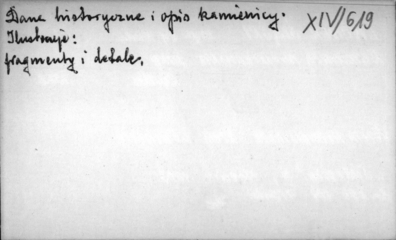 Dane historyczne i opis kamienicy.
XIV/619
Ilustracje:
fragmenty i detale.